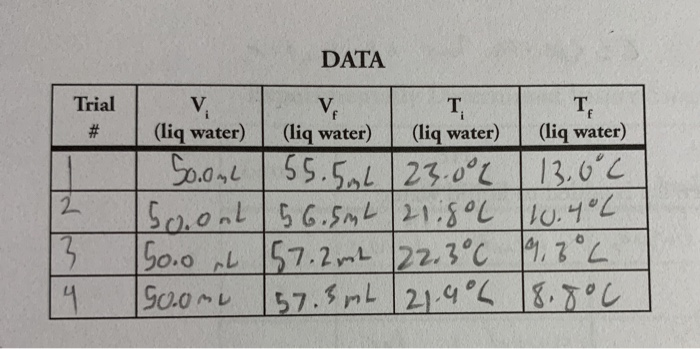 DATA
Trial # V_i (liq water) V_f (liq water) T_i (liq water) T_f (liq water)
1 50.0mL 55.5mL 23.0°C 13.0°C
2 50.0mL 56.5mL 21.8°C 10.4°C
3 50.0 mL 57.2mL 22.3°C
4 50.0mL 21.9°C 8.8°C